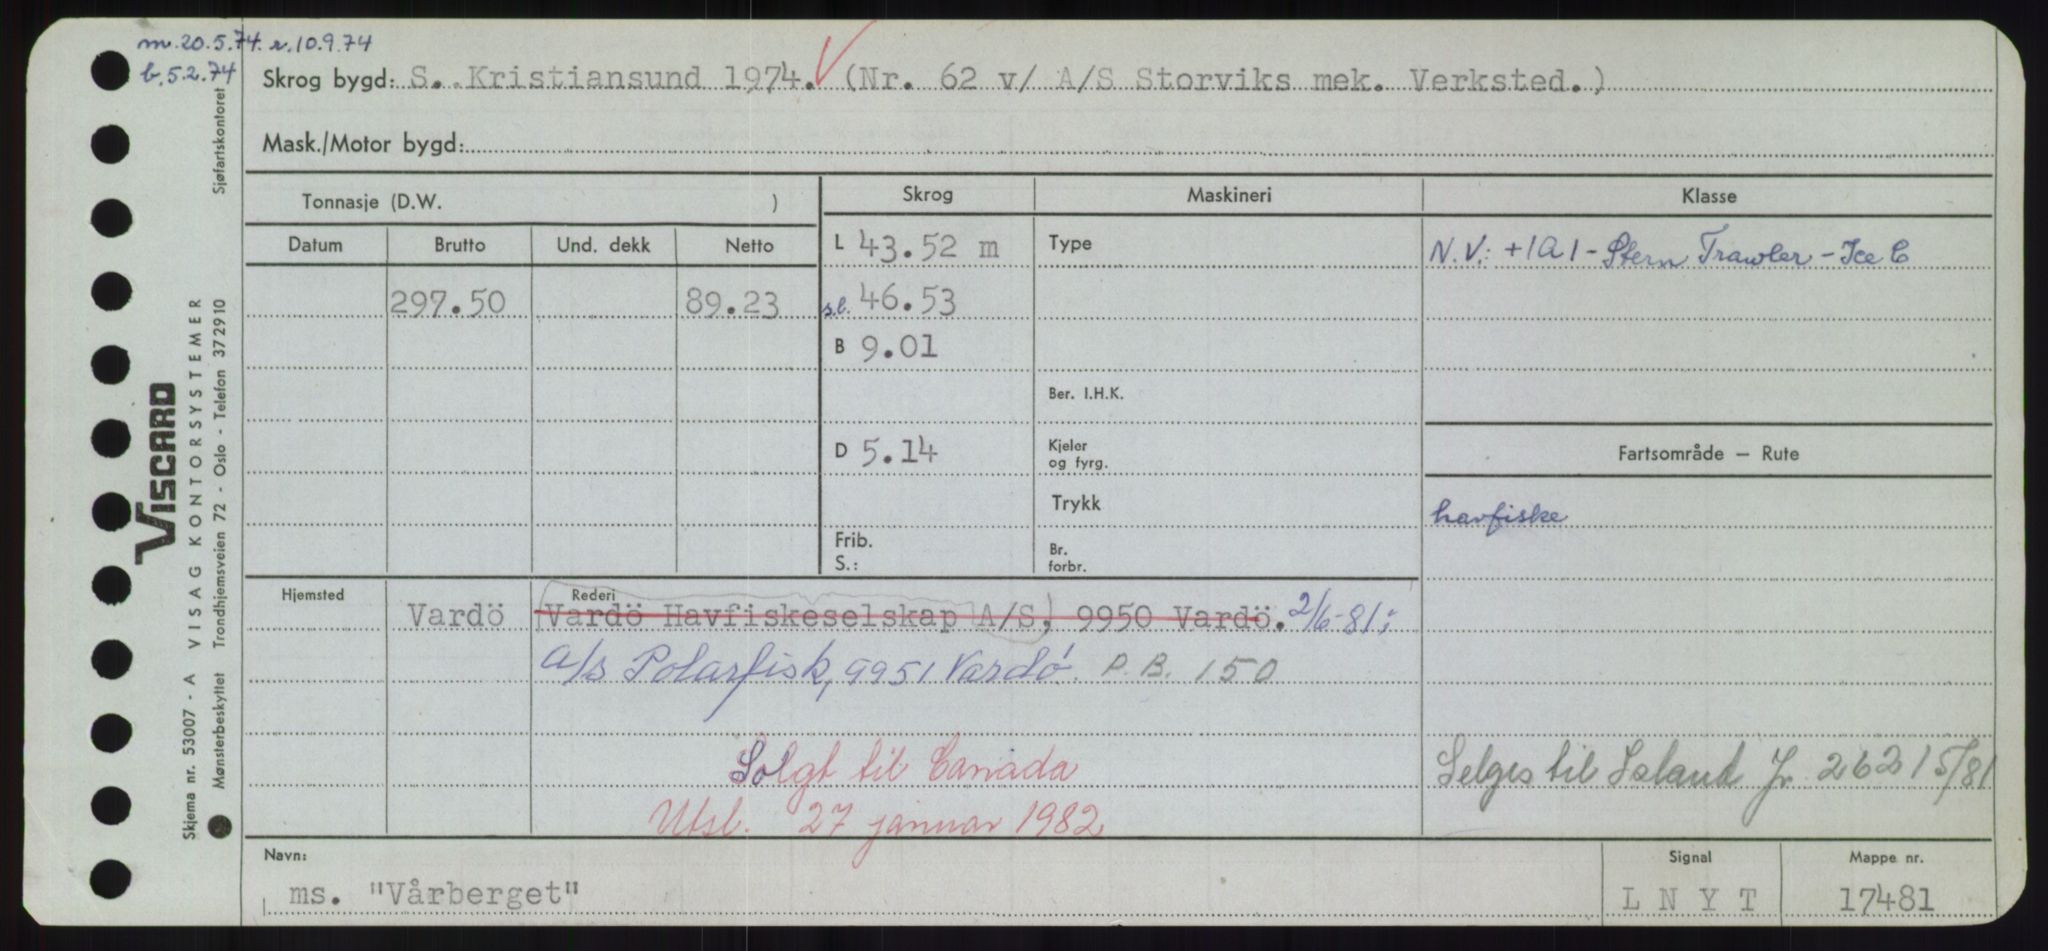 m. 20.5.74. r. 10.9.74
b. 5.2.74
Skrog bygd: S. Kristiansund 1974. (Nr. 62 v/ A/S Storviks mek. Verksted.)
Mask./Motor bygd:
Tonnasje (D.W. )
Skrog
Maskineri
Klasse
Datum
Brutto
Und. dekk
Netto
L 43.52 m
Type
N.V.: +1A1 - Stern Trawler - Ice C
297.50
89.23
s.l. 46.53
B 9.01
Ber. I.H.K.
D 5.14
Kjeler
og fyrg.
Fartsområde – Rute
Trykk
havfiske
Frib.
S.:
Br.
forbr.
Hjemsted
Rederi
Vardö
Vardö Havfiskeselskap A/S, 9950 Vardö. 2/6-81:
a/s Polarfisk, 9951 Vardø P.B. 150
Solgt til Canada
Selges til Island Jr. 2621 5/81
Utsl. 27 januar 1982
Navn:
ms. "Vårberget"
Signal
L N Y T
Mappe nr.
17481
VISCARD
VISAG KONTORSYSTEMER
Skjema nr. 53007 - A
Mønsterbeskyttet
Trondhjemsveien 72 - Oslo - Telefon 372910
Sjøfartskontoret